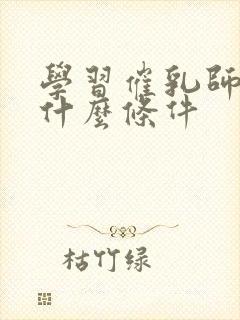 學習催乳師
什麼條件
枯竹绿